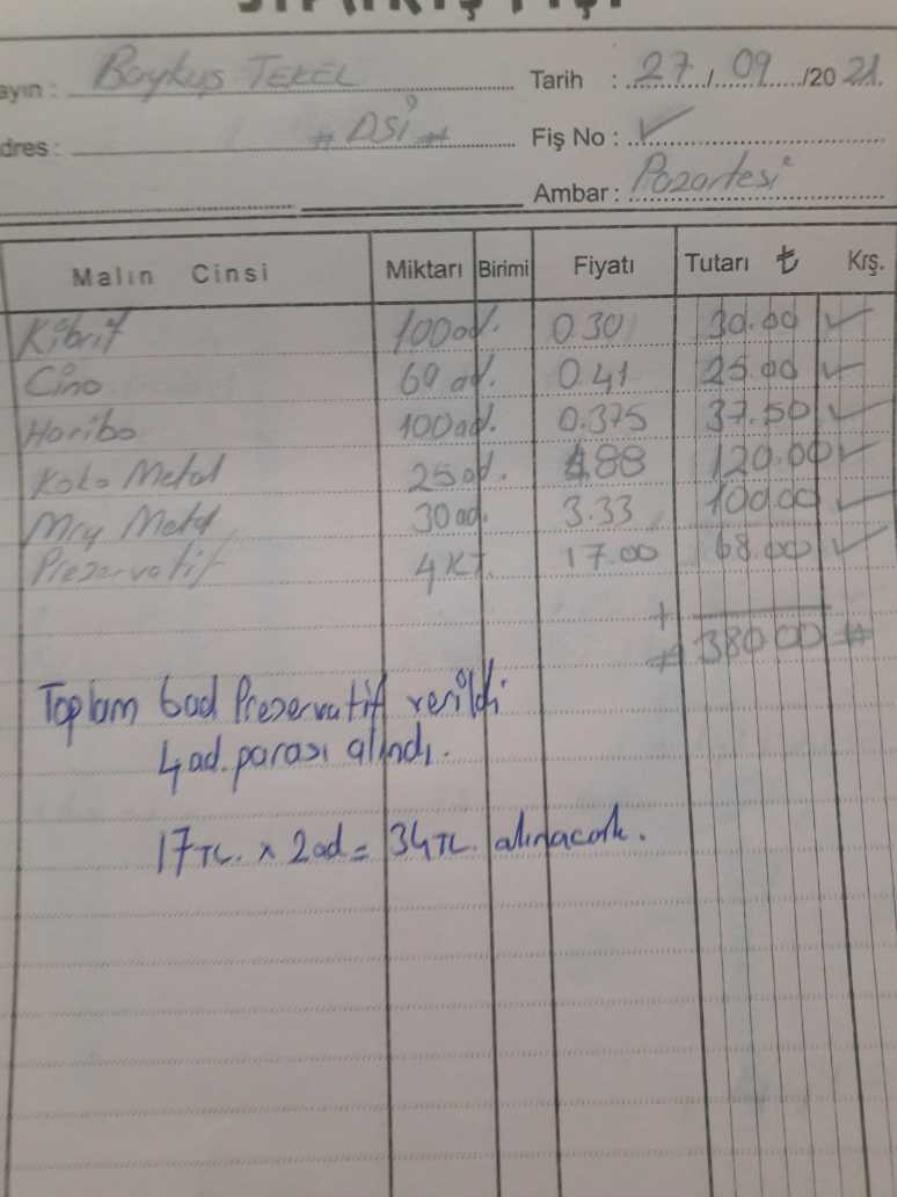 SİPARİŞ FİŞİ
ayın : Baykuş TEKEL Tarih : 27/09/2021
dres : # DSİ # Fiş No : ✓
Ambar : Pazartesi
Malın Cinsi Miktarı Birimi Fiyatı Tutarı ₺ Krş.
Kibrit 100ad. 0.30 30.00 ✓
Cino 60 ad. 0.41 25.00 ✓
Haribo 100ad. 0.375 37.50 ✓
Koko Metal 25ad. 4.88 120.00 ✓
Metal 30ad. 3.33 100.00 ✓
Prezervatif 4 KT. 17.00 68.00 ✓
+
# 380.00 #
Toplam 6ad Prezervatif verildi
4 ad. parası alındı.
17 TL. x 2ad = 34 TL. alınacak.